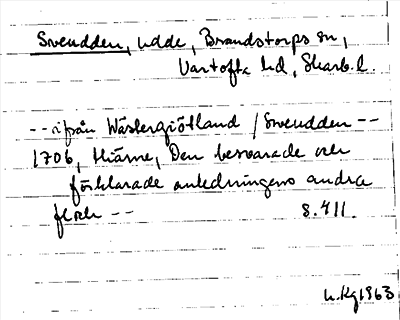 Svendden, udde, Brandstorps sn,
Vartofta hd, Skarb.l.
-- ifrån Wästergiötland / Svendden --
1706, Hiärne, Den beswarade och
förklarade anledningens andra
flock -- S. 411.
L.Kg 1963